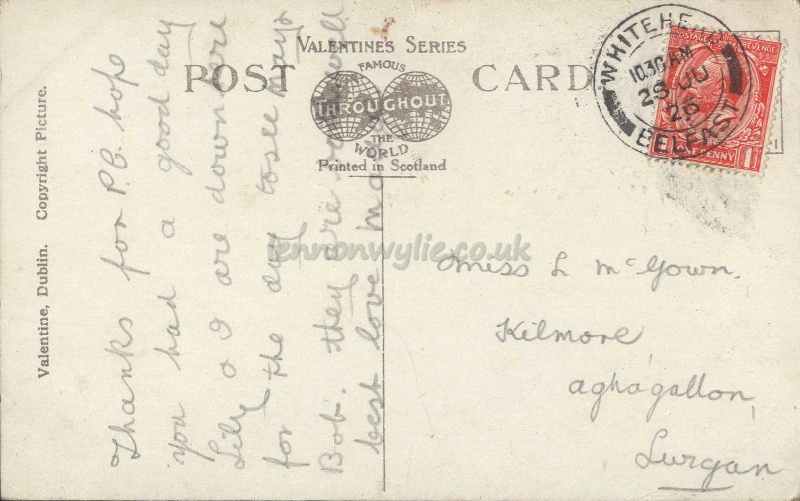 VALENTINES SERIES
FAMOUS
POST CARD
THROUGHOUT
THE
WORLD
Printed in Scotland
Valentine, Dublin. Copyright Picture.
WHITEHE
10.30 AM
JU
26
BELFAST
POSTAGE REVENUE
ONE PENNY
1D
Thanks for P.C. hope
you had a good day
Lily & I are down here
for the day to see
Bob. they are all well
best love
Miss L McGown,
Kilmore,
aghagallon,
Lurgan
ennonwylie.co.uk